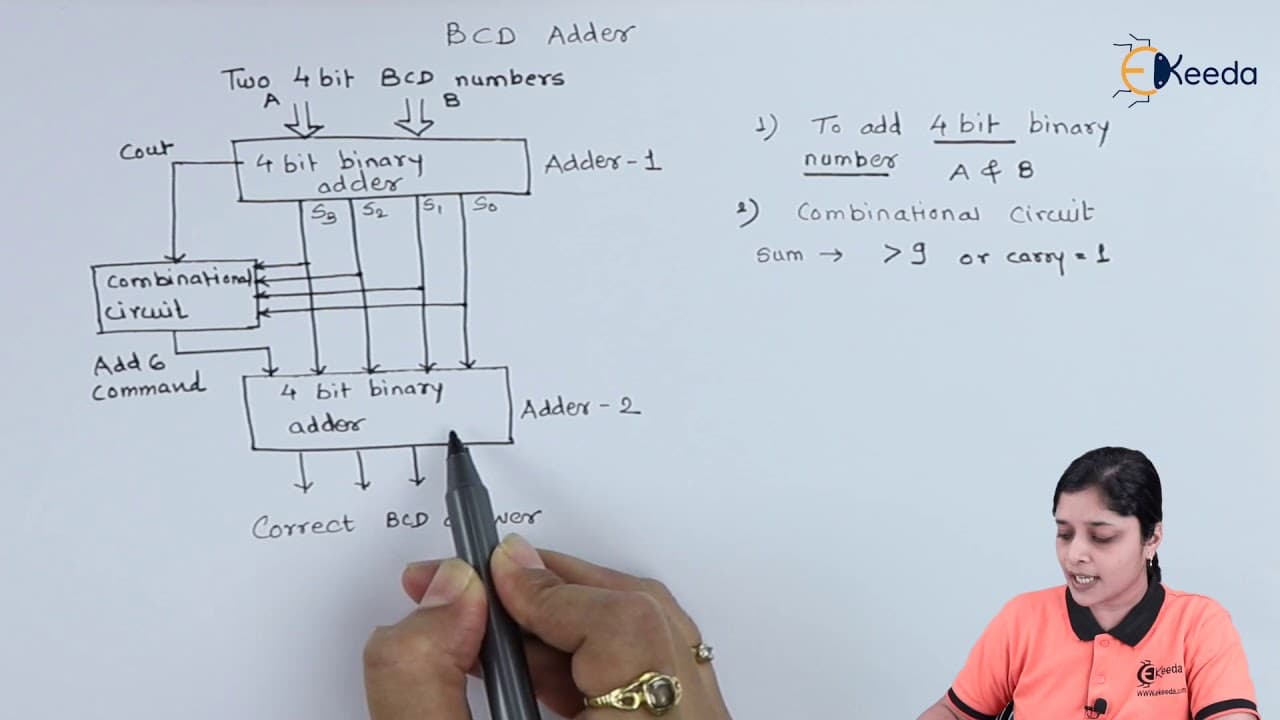 BCD Adder
Two 4 bit BCD numbers
A B
Cout
4 bit binary
adder
Adder-1
S3 S2 S1 S0
combinational
circuit
Add 6
command
4 bit binary
adder
Adder - 2
Correct BCD
1) To add 4 bit binary
number A & B
2) Combinational Circuit
Sum → > 9 or carry = 1
EKeeda
EKeeda
www.ekeeda.com